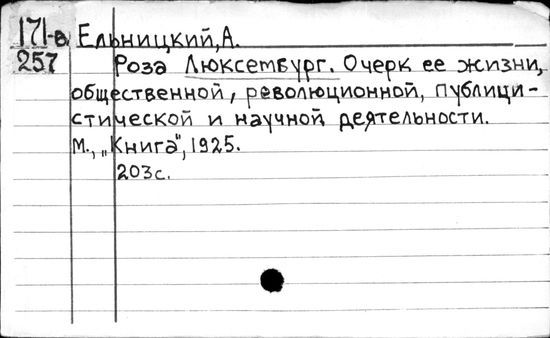 171-в Ельницкий, А.
257 Роза Люксембург. Очерк ее жизни,
общественной, революционной, публици-
стической и научной деятельности.
М., „Книга", 1925.
203с.